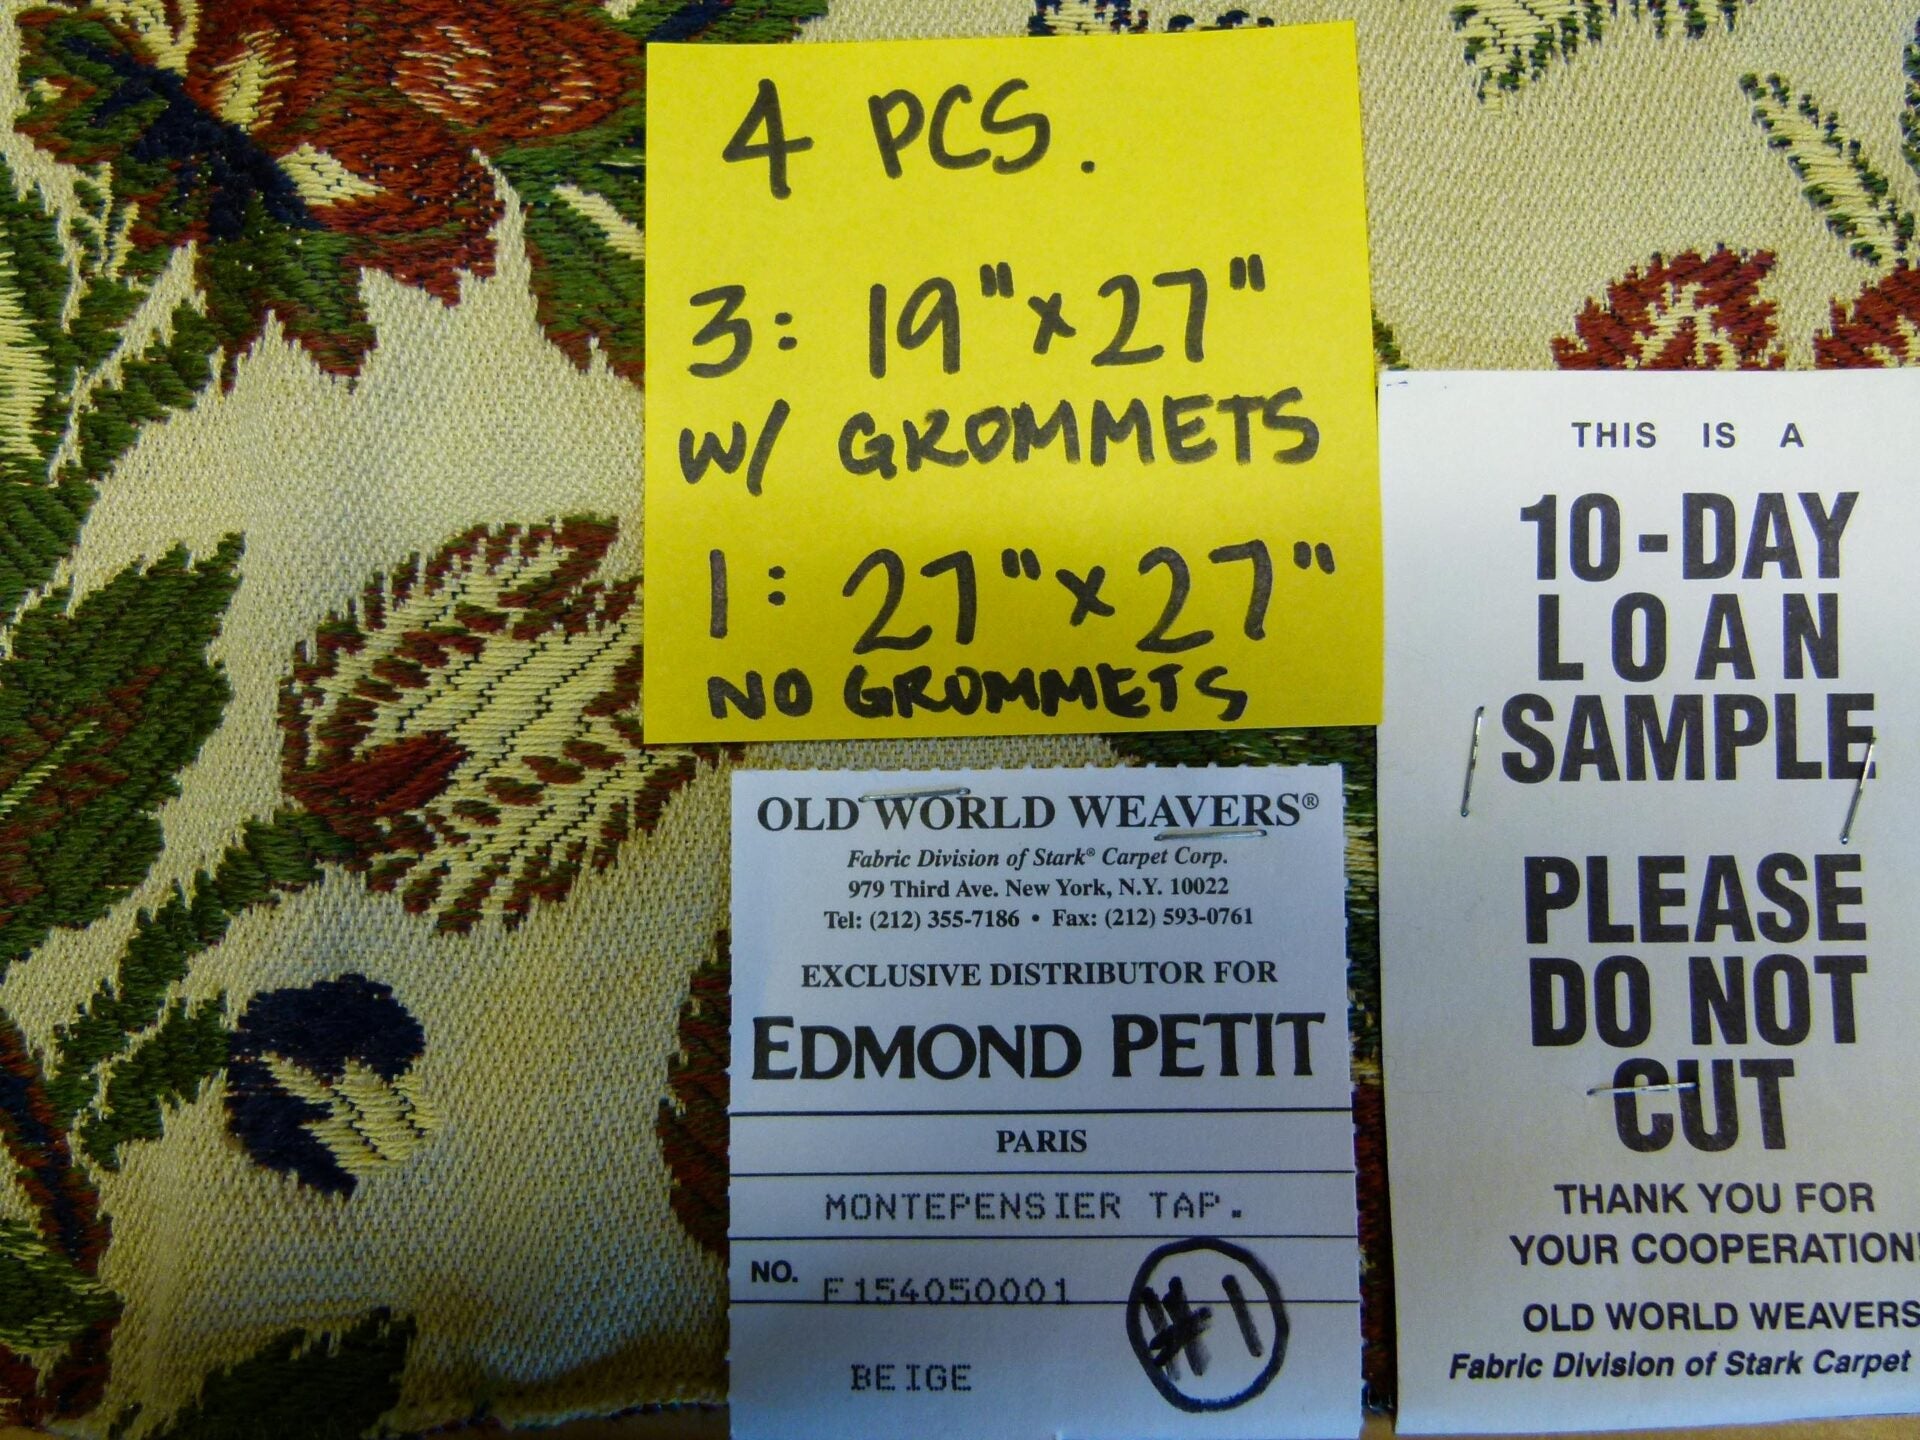 4 PCS.
3: 19" x 27"
W/ GROMMETS
1: 27" x 27"
NO GROMMETS
OLD WORLD WEAVERS®
Fabric Division of Stark® Carpet Corp.
979 Third Ave. New York, N.Y. 10022
Tel: (212) 355-7186 • Fax: (212) 593-0761
EXCLUSIVE DISTRIBUTOR FOR
EDMOND PETIT
PARIS
MONTEPENSIER TAP.
NO. F154050001
#1
BEIGE
THIS IS A
10-DAY
LOAN
SAMPLE
PLEASE
DO NOT
CUT
THANK YOU FOR
YOUR COOPERATION!
OLD WORLD WEAVERS
Fabric Division of Stark Carpet